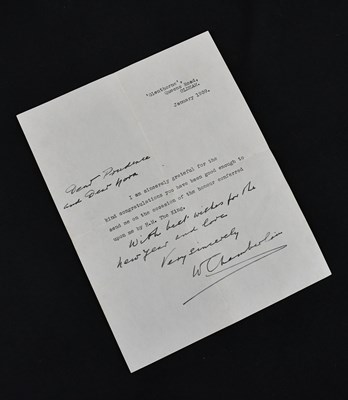 'Glenthorne',
Queens Road,
OLDHAM.
January 1939.
Dear Prudence
and Dear Nora
I am sincerely grateful for the
kind congratulations you have been good enough to
send me on the occasion of the honour conferred
upon me by H.M. The King.
With best wishes for the
New Year and love
Very sincerely
W Chamberlain